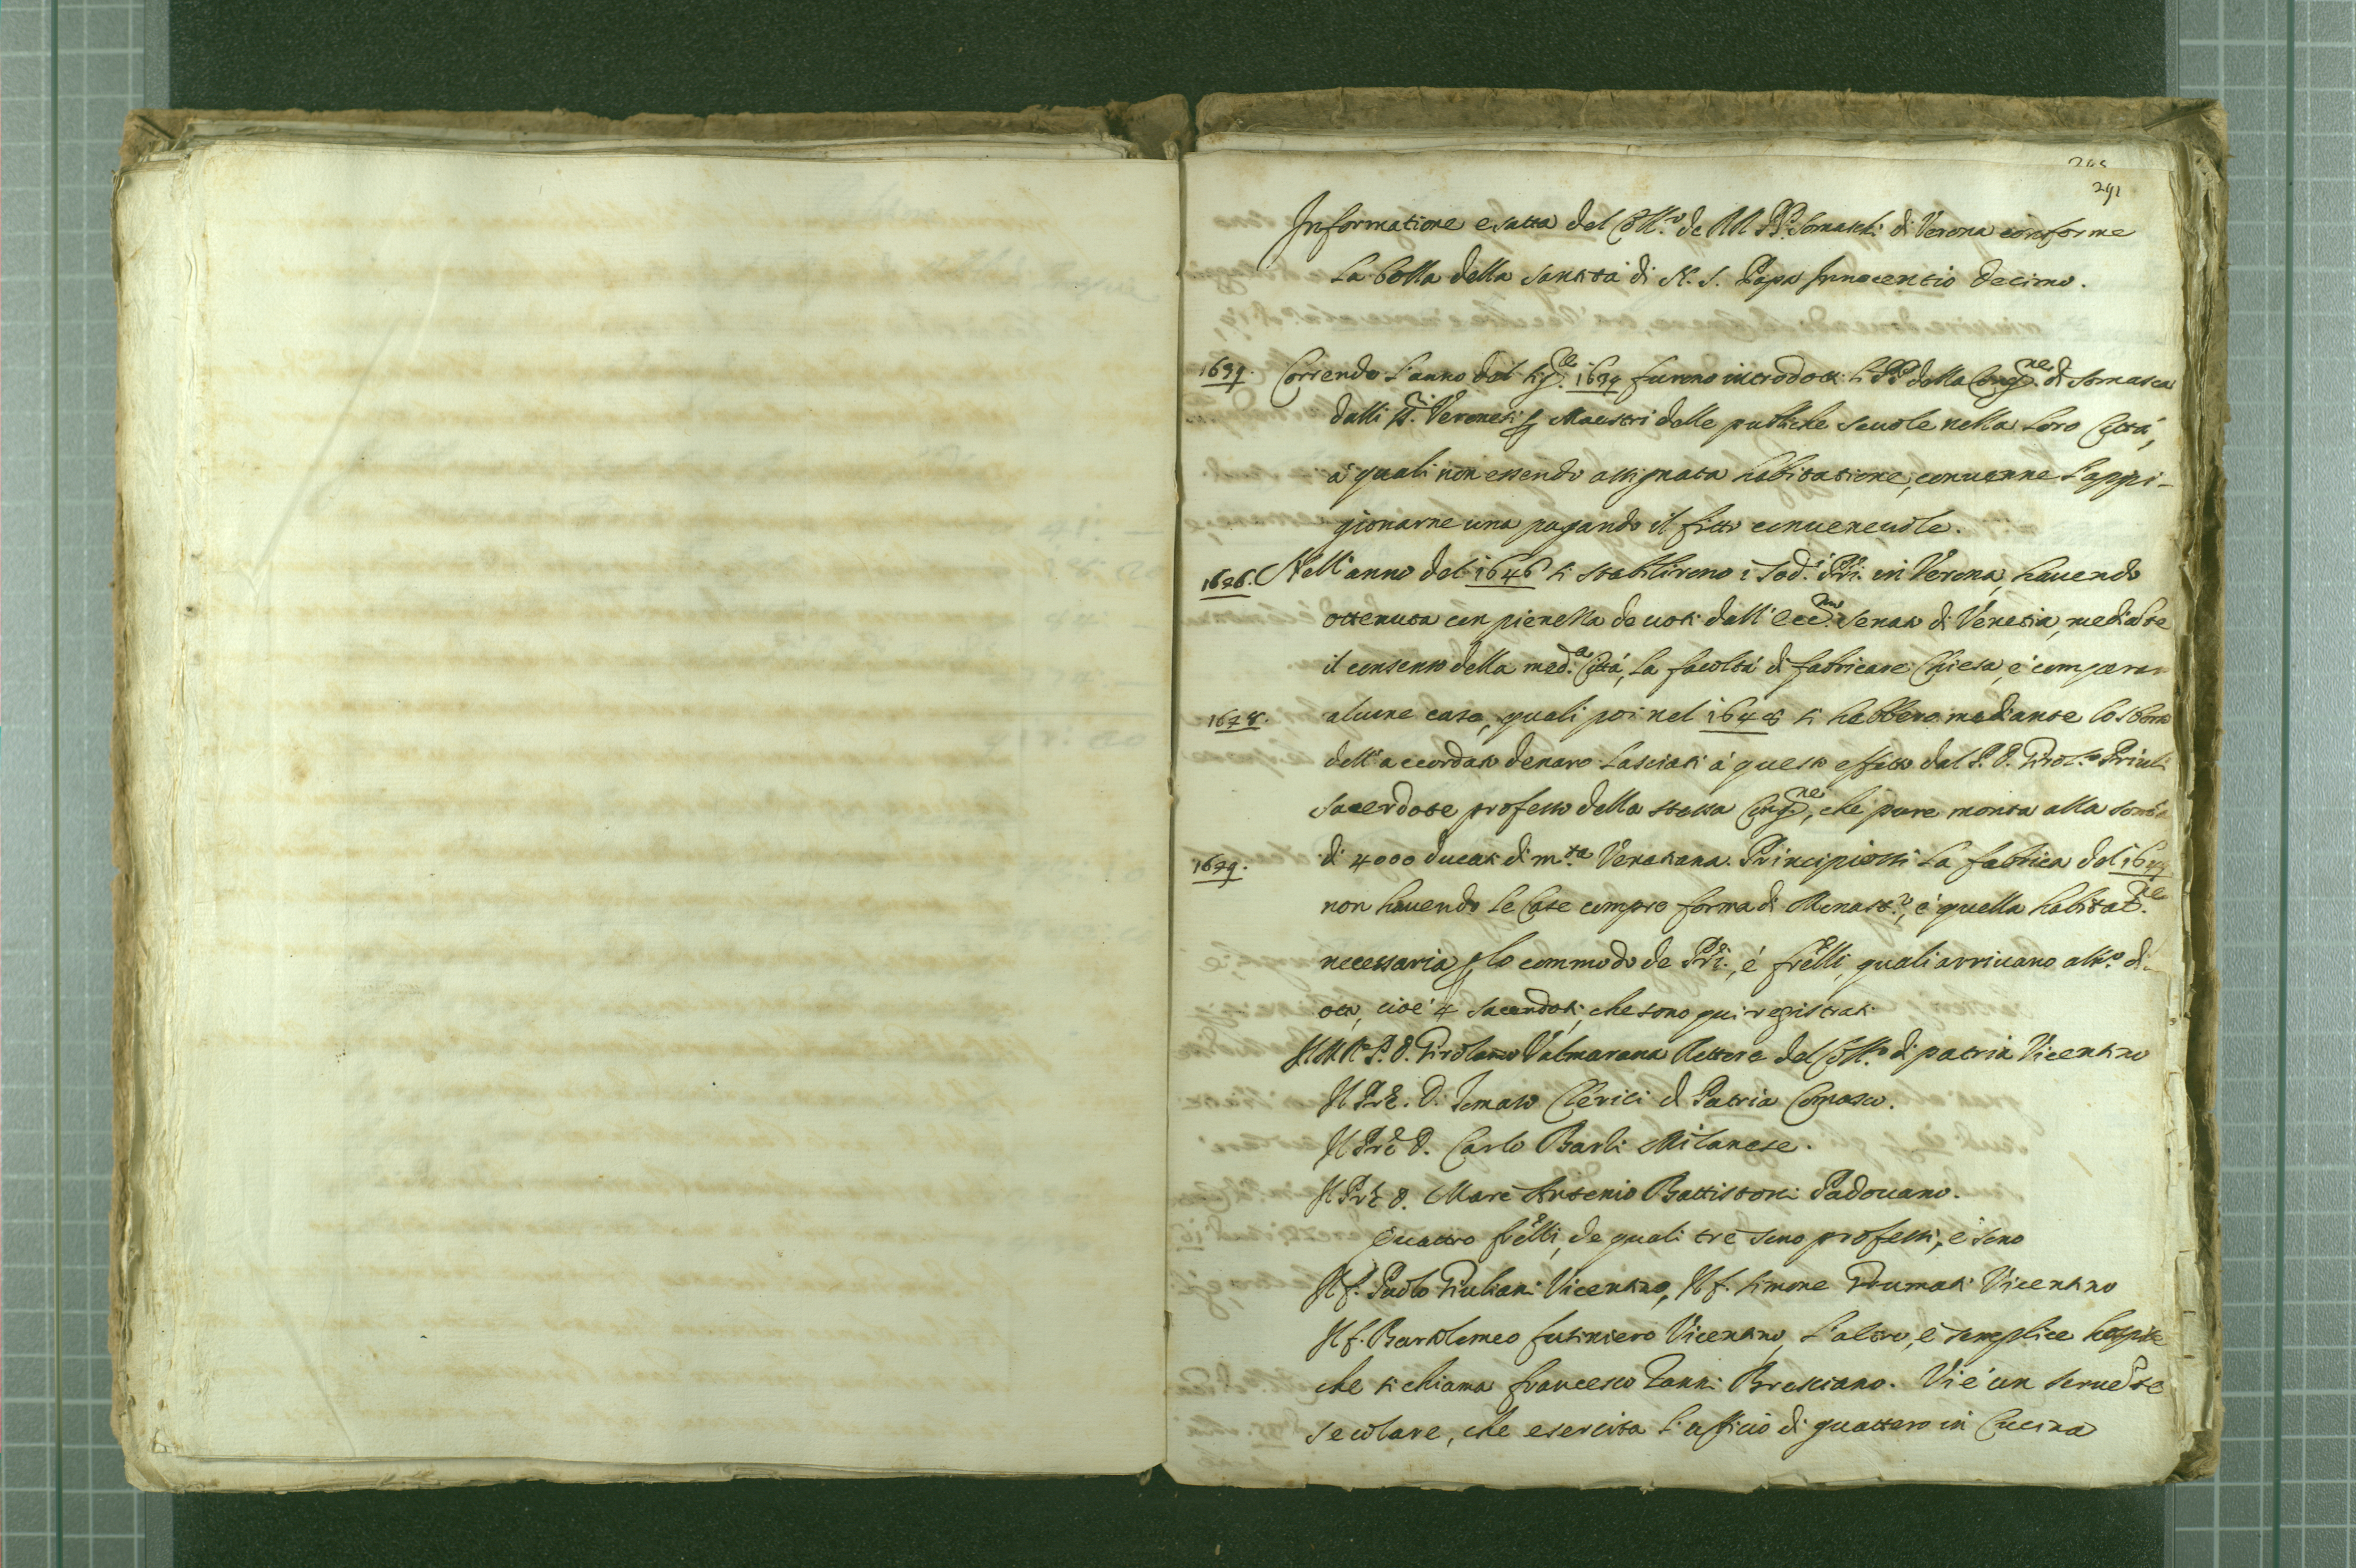 291
Informatione esatta del Coll.o de RR. PP. Somaschi di Verona conforme
la bolla della Santità di N. S. Papa Innocentio Decimo.
1639. Correndo l'anno del Sig.re 1639 furono introdotti li PP. della Cong.ne di Somasca
dalli SS.ri Veronesi p Maestri delle publiche scuole nella loro Città,
a' quali non essendo assignata habitatione, convenne l'appi-
gionarne una pagando il fitto convenevole.
1646. Nell'anno del 1646 si stabilirono i sod.i Pri. in Verona, havendo
ottenuta con pienezza de voti dall'Ecc.mo Senato di Venetia, mediãte
il consenso della med.a Città, la facoltà di fabricare Chiesa, e comperar
1648. alcune case, quali poi nel 1648 si hebbero mediante lo sborso
dell'accordato denaro lasciati à questo effetto dal P. D. Girol.o Priuli
Sacerdote professo della stessa Cong.ne, che pure monta alla somma
1649. di 4000 ducati di m.ta Venetiana. Principiossi la fabrica del 1649
non havendo le Case compre forma di Monast.o, e quella habitat.ne
necessaria p lo commodo de Pri., é frelli, quali arrivano al n.o di
otto, cioé 4 sacerdoti, che sono qui registrati
Il M. R. P. D. Girolamo Valmarana Rettore del Coll.o di patria Vicentino
Il Pre. D. Tomaso Clerici di Patria Comasco.
Il Pre D. Carlo Barli Milanese.
Il Pre D. Marc'Antonio Battistoni Padovano.
Quattro frelli, de quali tre sono professi, e sono
Il f. Paolo Giuliani Vicentino, Il f. Simone Grumati Vicentino
Il f. Bartolomeo Futiniero Vicentino, l'altro, è semplice hospite
che si chiama Francesco Zanni Bresciano. Vi é un servẽte
secolare, che esercita l'officio di guattero in Cucina